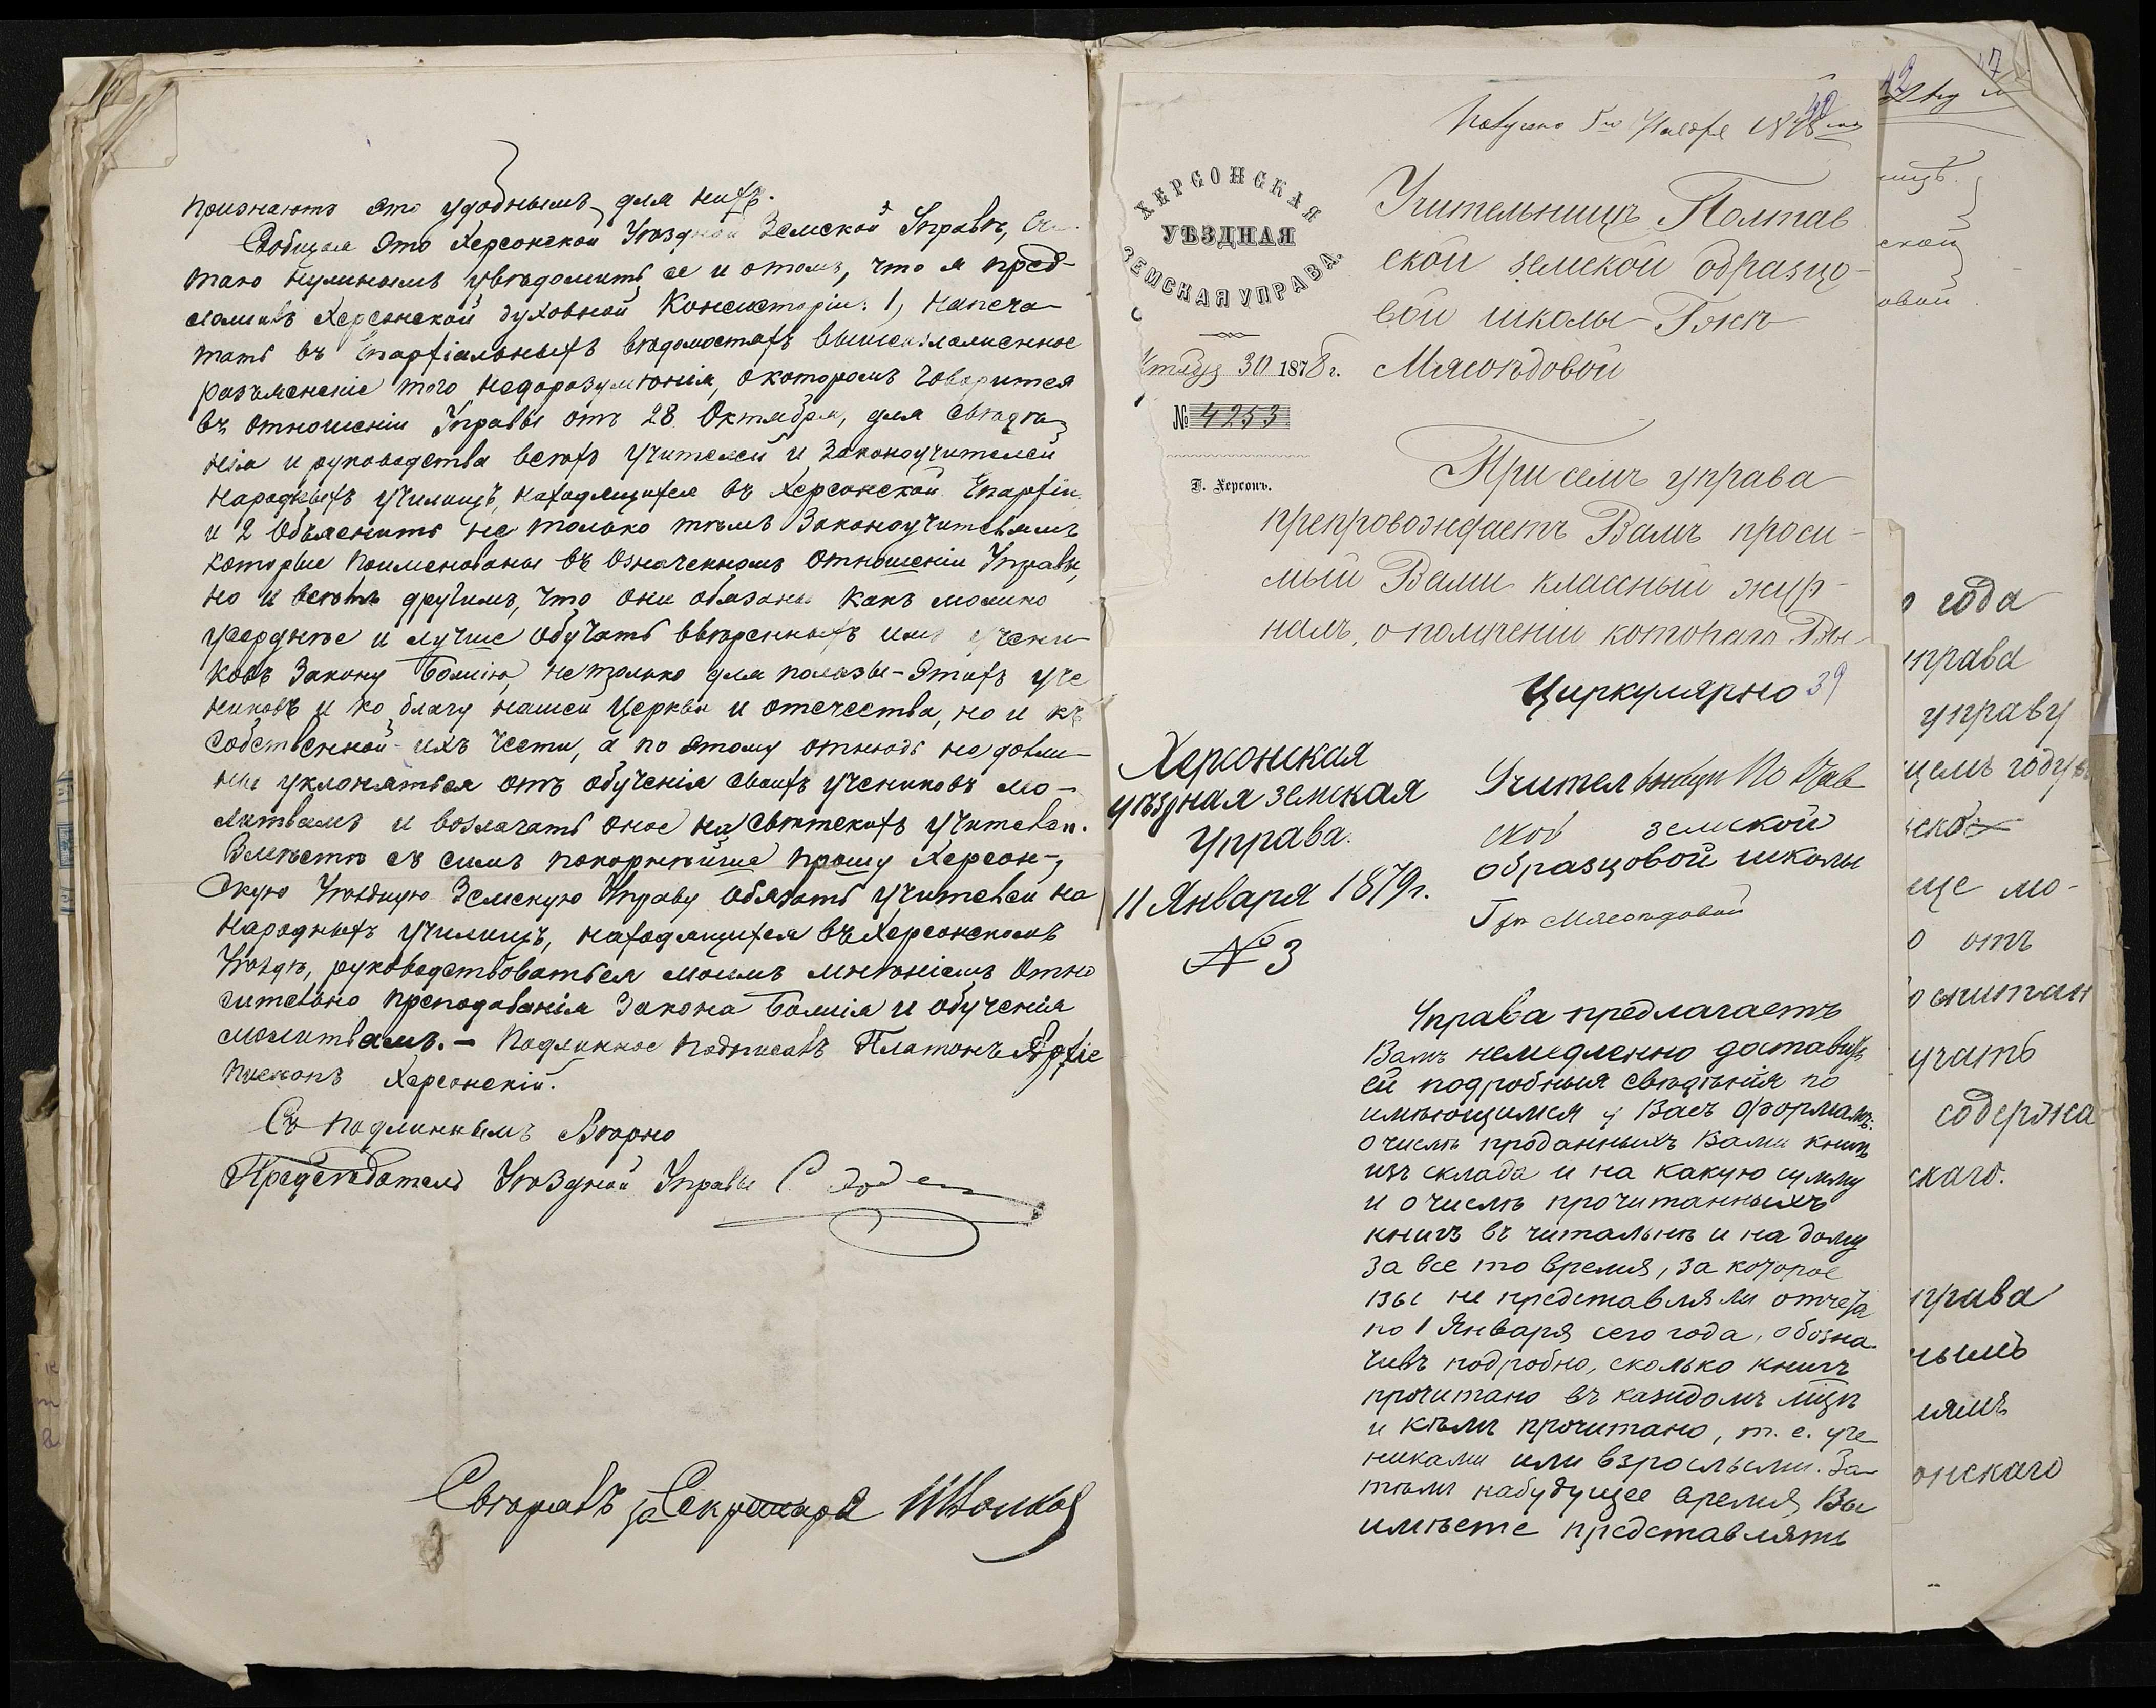 признаютъ это удобнымъ для нихъ.
Сообщая это Херсонской Уѣздной Земской Управѣ, счи
таю нужнымъ увѣдомить ее и о томъ, что я пред-
ложилъ Херсонской духовной Консисторіи: 1, Напеча-
тать въ Епархіальныхъ вѣдомостяхъ вышеизложенное
разъясненіе того недоразумѣнія, о которомъ говорится
въ отношеніи Управы отъ 28 Октября, для свѣдѣ-
нія и руководства всѣхъ учителей и Законоучителей
народныхъ училищъ, находящихся въ Херсонской Епархіи
и 2 Объяснить не только тѣмъ Законоучителямъ
которые поименованы въ означенномъ отношеніи Управы,
но и всѣмъ другимъ, что они обязаны какъ можно
усерднѣе и лучше обучать ввѣренныхъ имъ учени
ковъ Закону Божію, не только для пользы-этихъ уче
никовъ и ко благу нашей Церкви и отечества, но и къ
собственной-ихъ чести, а по этому отнюдь не долж-
ны уклоняться отъ обученія своихъ учениковъ мо-
литвамъ и возлагать оное на свѣтскихъ учителей.
Вмѣстѣ съ симъ покорнѣйше прошу Херсон-
скую Уѣздную Земскую Управу обязать учителей на
народныхъ училищъ, находящихся въ Херсонскомъ
Уѣздѣ, руководствоваться моимъ мнѣніемъ относ
сительно преподаванія Закона Божія и обученія
молитвамъ. — Подлинное подписалъ Платонъ Архіе
пископъ Херсонскій.
Съ подлиннымъ Вѣрно
Предсѣдатель Уѣздной Управы
Свѣрялъ за Секретаря
Получено 5го Ноября 1878 года
40
ХЕРСОНСКАЯ
УѢЗДНАЯ
ЗЕМСКАЯ УПРАВА.
30 1878 г.
№ 4253
Г. Херсонъ.
Учительницѣ Полтав
ской земской образцо-
вой школы Г-жѣ
Мясоѣдовой
При семъ управа
препровождаетъ Вамъ проси-
мый Вами классный жур-
налъ, о полученіи котораго Вы-
Циркулярно 39
Херсонская
уѣздная земская
Управа.
11 Января 1879 г.
№ 3
Учительницѣ Полтав
ской земской
образцовой школы
Г-жѣ Мясоѣдовой
Управа предлагаетъ
Вамъ немедленно доставить
ей подробныя свѣдѣнія по
имѣющимся у Васъ формамъ:
о числѣ проданныхъ Вами книгъ
изъ склада и на какую сумму
и о числѣ прочитанныхъ
книгъ въ читальнѣ и на дому
за все то время, за которое
вы не представляли отчета
по 1 Января сего года, обозна-
чивъ подробно, сколько книгъ
прочитано въ каждомъ мѣсѣ
и кѣмъ прочитано, т. е. уче-
никами или взрослыми. За-
тѣмъ на будущее время Вы
имѣете представлять
ницѣ
ской
овой
года
управа
управу
щемъ году въ
еще мо-
о отъ
учать
содержа
скаго.
права
нымъ
лямъ
онскаго